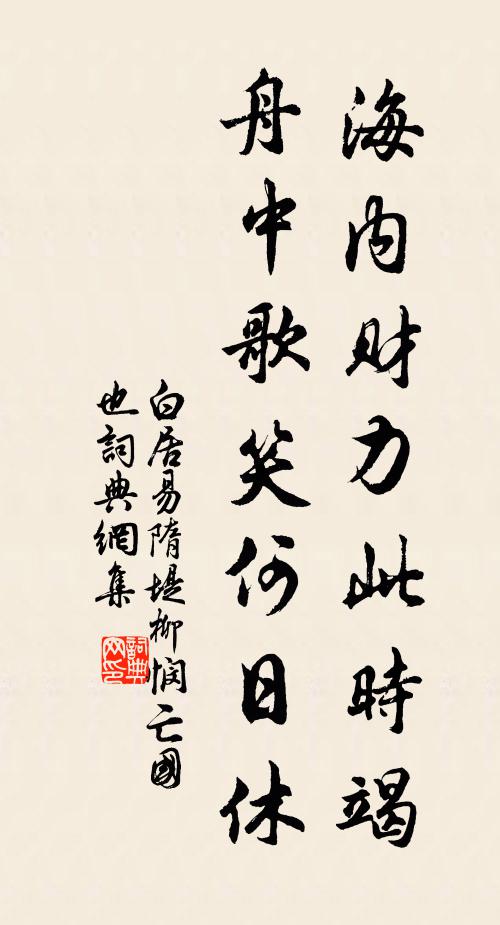 海内财力此時竭
舟中歌笑何日休
白居易隋堤柳悯亡國
也詞典網集
詞典
网印